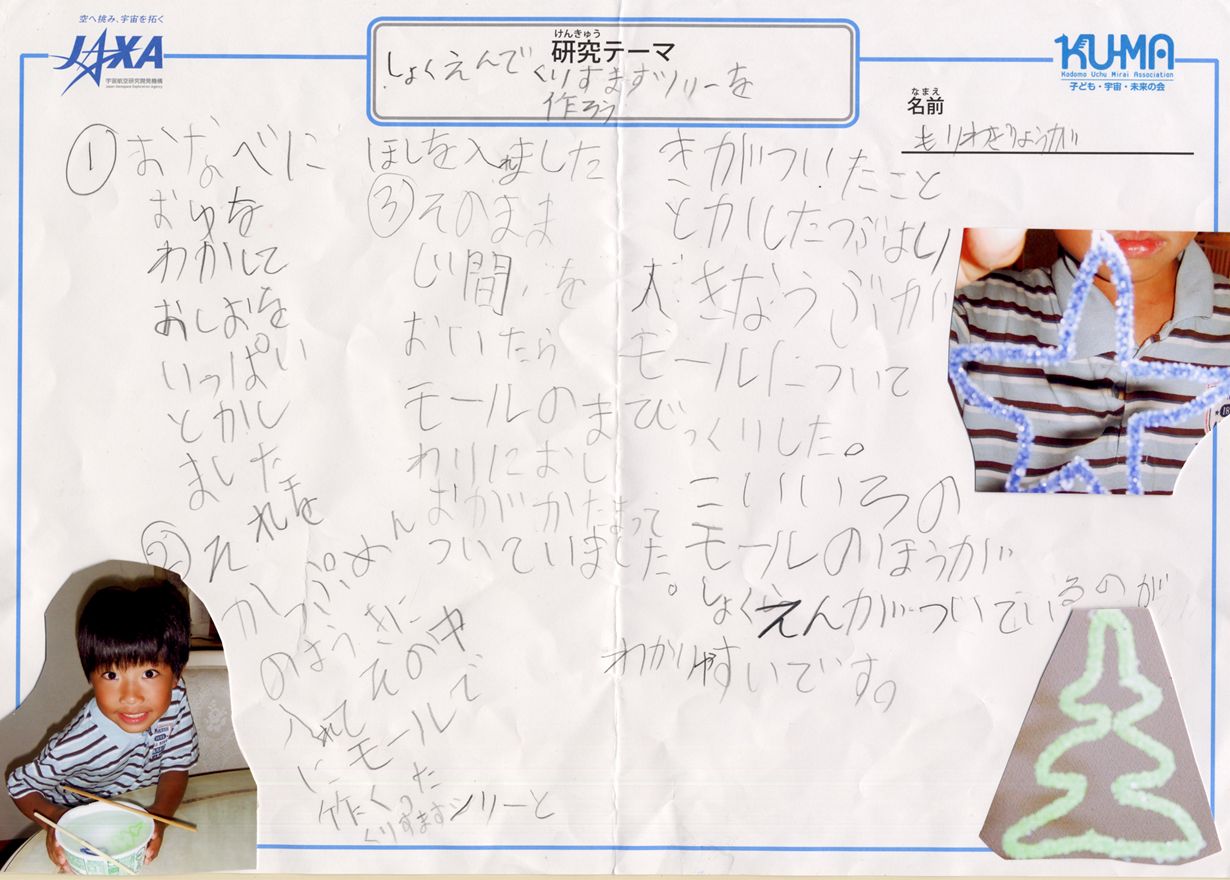 空へ挑み、宇宙を拓く
JAXA
宇宙航空研究開発機構
Japan Aerospace Exploration Agency
けんきゅう
研究テーマ
しょくえんでくりすますツリーを
作ろう
KU-MA
Kodomo Uchu Mirai Association
子ども・宇宙・未来の会
なまえ
名前
もりわきりょうが
① おなべに
おゆを
わかして
おしおを
いっぱい
とかし
ました
② それを
かっぷめん
のようきに
入れて その中
に モールで
作った
くりすますツリーと
ほしを入れました
③ そのまま
じ間を
おいたら
モールのま
わりにおし
おがかたまって
ついていました。
きがついたこと
とかしたつぶより
大きなつぶが
モールについて
びっくりした。
こいいろの
モールのほうが
しょくえんがついているのが
わかりやすいです。